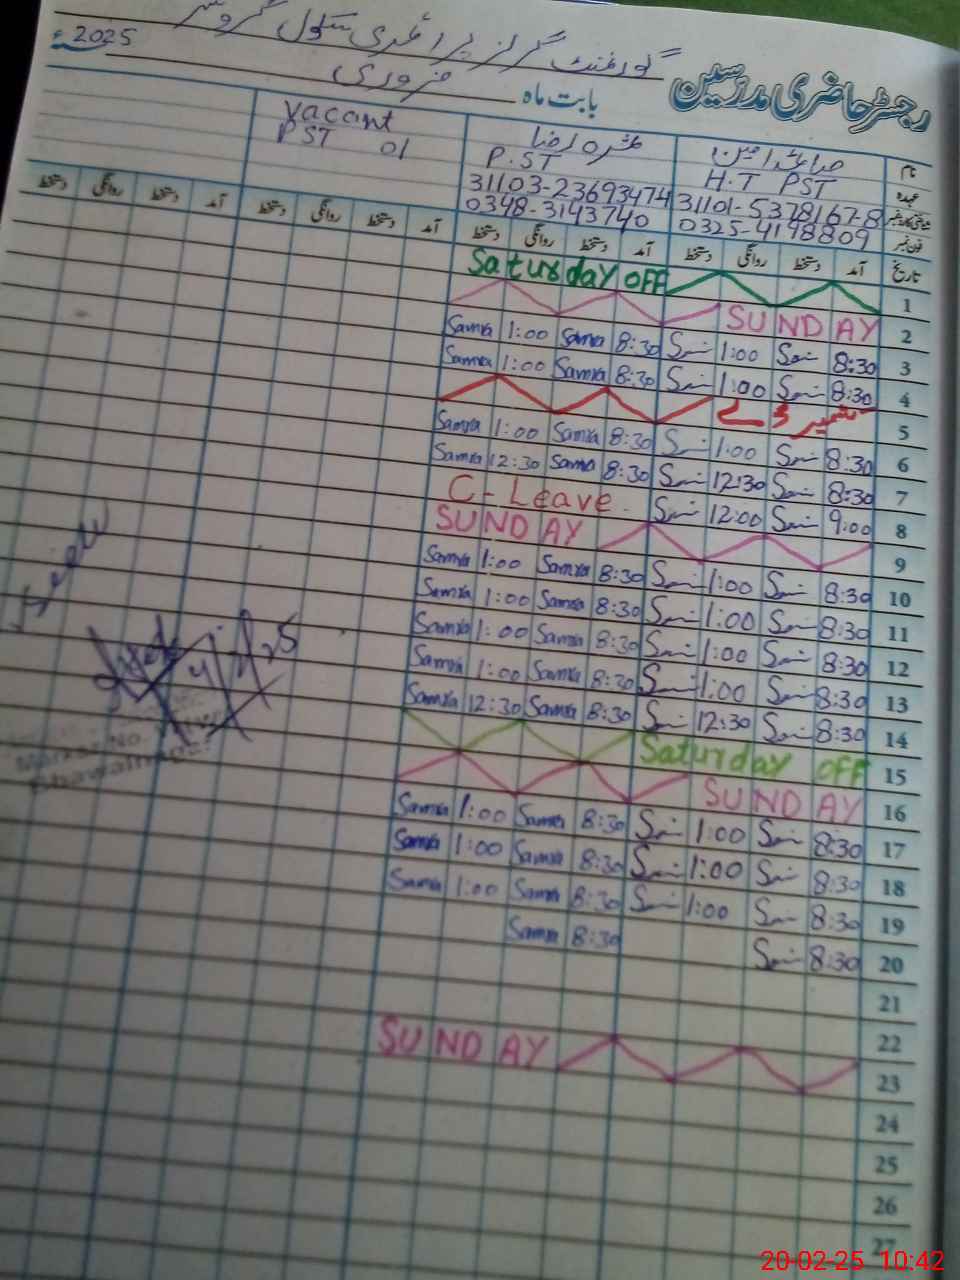 گورنمنٹ گرلز پرائمری سکول
رجسٹر حاضری مدرسین
بابت ماہ فروری 2025ء
نام
Vacant
عہدہ H.T PST P.ST PST 01
شناختی کارڈ نمبر 31101-5378167-8 31103-23693474
فون نمبر 0325-4198809 0348-3143740
تاریخ آمد دستخط روانگی دستخط آمد دستخط روانگی دستخط آمد دستخط روانگی دستخط آمد دستخط روانگی دستخط
Saturday OFF 1
SUNDAY 2
Samra 1:00 Samra 8:30 1:00 8:30 3
Samra 1:00 Samra 8:30 1:00 8:30 4
کشمیر ڈے 5
Samra 1:00 Samra 8:30 1:00 8:30 6
Samra 12:30 Samra 8:30 12:30 8:30 7
C-Leave 12:00 9:00 8
SUNDAY 9
Samra 1:00 Samra 8:30 1:00 8:30 10
Samra 1:00 Samra 8:30 1:00 8:30 11
Samra 1:00 Samra 8:30 1:00 8:30 12
Samra 1:00 Samra 8:30 1:00 8:30 13
Samra 12:30 Samra 8:30 12:30 8:30 14
Saturday OFF 15
SUNDAY 16
Samra 1:00 Samra 8:30 1:00 8:30 17
Samra 1:00 Samra 8:30 1:00 8:30 18
Samra 1:00 Samra 8:30 1:00 8:30 19
Samra 8:30 8:30 20
21
22
SUNDAY 23
24
25
26
27
Markaz No.
Bhawalnagar
20-02-25 10:42